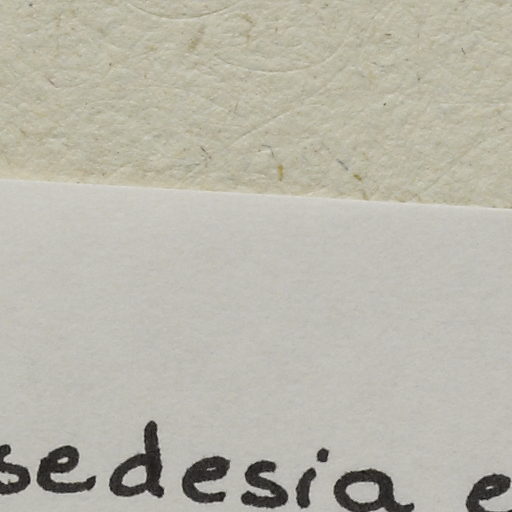 sedesia e